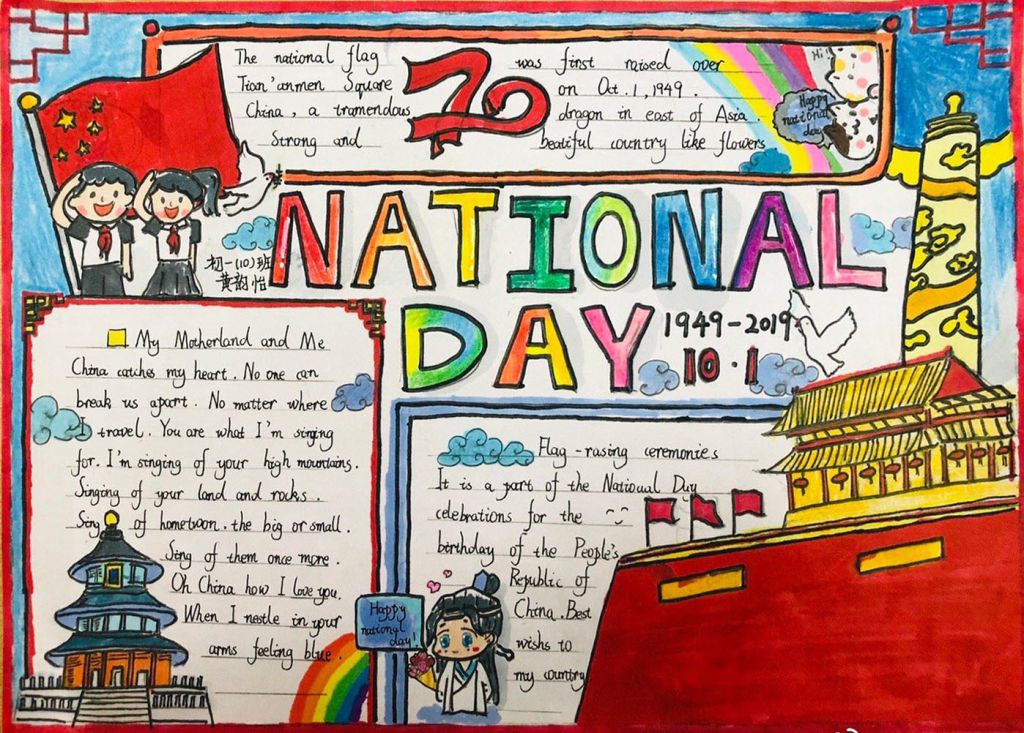 The national flag was first raised over
Tian'anmen Square on Oct.1,1949.
China, a tramendous dragon in east of Asia.
Strong and beatiful country like flowers
70
Hi!
Happy
national
day
NATIONAL
DAY
初一(10)班
黄韵怡
1949-2019
10·1
My Motherland and Me
China catches my heart. No one can
break us apart. No matter where
I travel. You are what I'm singing
for. I'm singing of your high mountains.
Singing of your land and rocks.
Sing of hometoon. the big or small.
Sing of them once more.
Oh China how I love you.
When I nestle in your
arms feeling blue.
Flag-rasing ceremonies
It is a part of the National Day
celebrations for the
birthday of the People's
Republic of
China. Best
wishs to
my country
Happy
national
day!